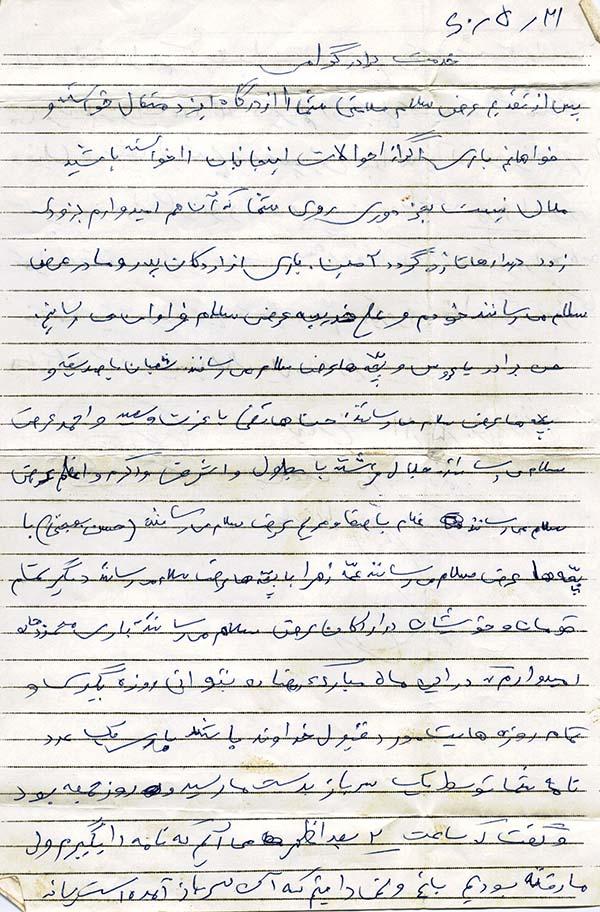 ۶۰/۵/۲۱
خدمت برادر گرامی
پس از تقدیم عرض سلام سلامتی شما را از درگاه ایزد متعال خواسته و
خواهانم باری اگر از احوالات اینجانبان را خواسته باشید
ملالی نیست بجز دوری روی شما که آن هم امیدوارم بزودی
زود دیدارها تازه گردد آمین. باری از اردکان پدر و مادر عرض
سلام می رسانند خودم و خدیجه عرض سلام فراوان می رسانیم
حسن برادر با عروس و بچه ها عرض سلام می رسانند شعبان با صدیقه و
بچه ها عرض سلام می رسانند با عزت و سعید و احمد عرض
سلام می رسانند جلال با بهلول و اشرف و اکرم و اعظم عرض
سلام می رسانند غلام با صفا و مریم عرض سلام می رسانند (حسن) با
بچه ها عرض سلام می رسانند عمه زهرا با بچه ها عرض سلام می رسانند دیگر تمام
قومان و خویشان در اردکان عرض سلام می رسانند باری
امیدوارم که در این ماه مبارک رمضان بتوانی روزه بگیری و
تمام روزه هایت مورد قبول خداوند باشد باری یک عدد
نامه شما توسط یک سرباز بدست ما رسید و روز جمعه بود
و گفت که ساعت ۲ بعد از ظهر می آیم که نامه را بگیرم ولی
ما رفته بودیم باغ و نمی دانیم که آن سرباز آمده است یا نه